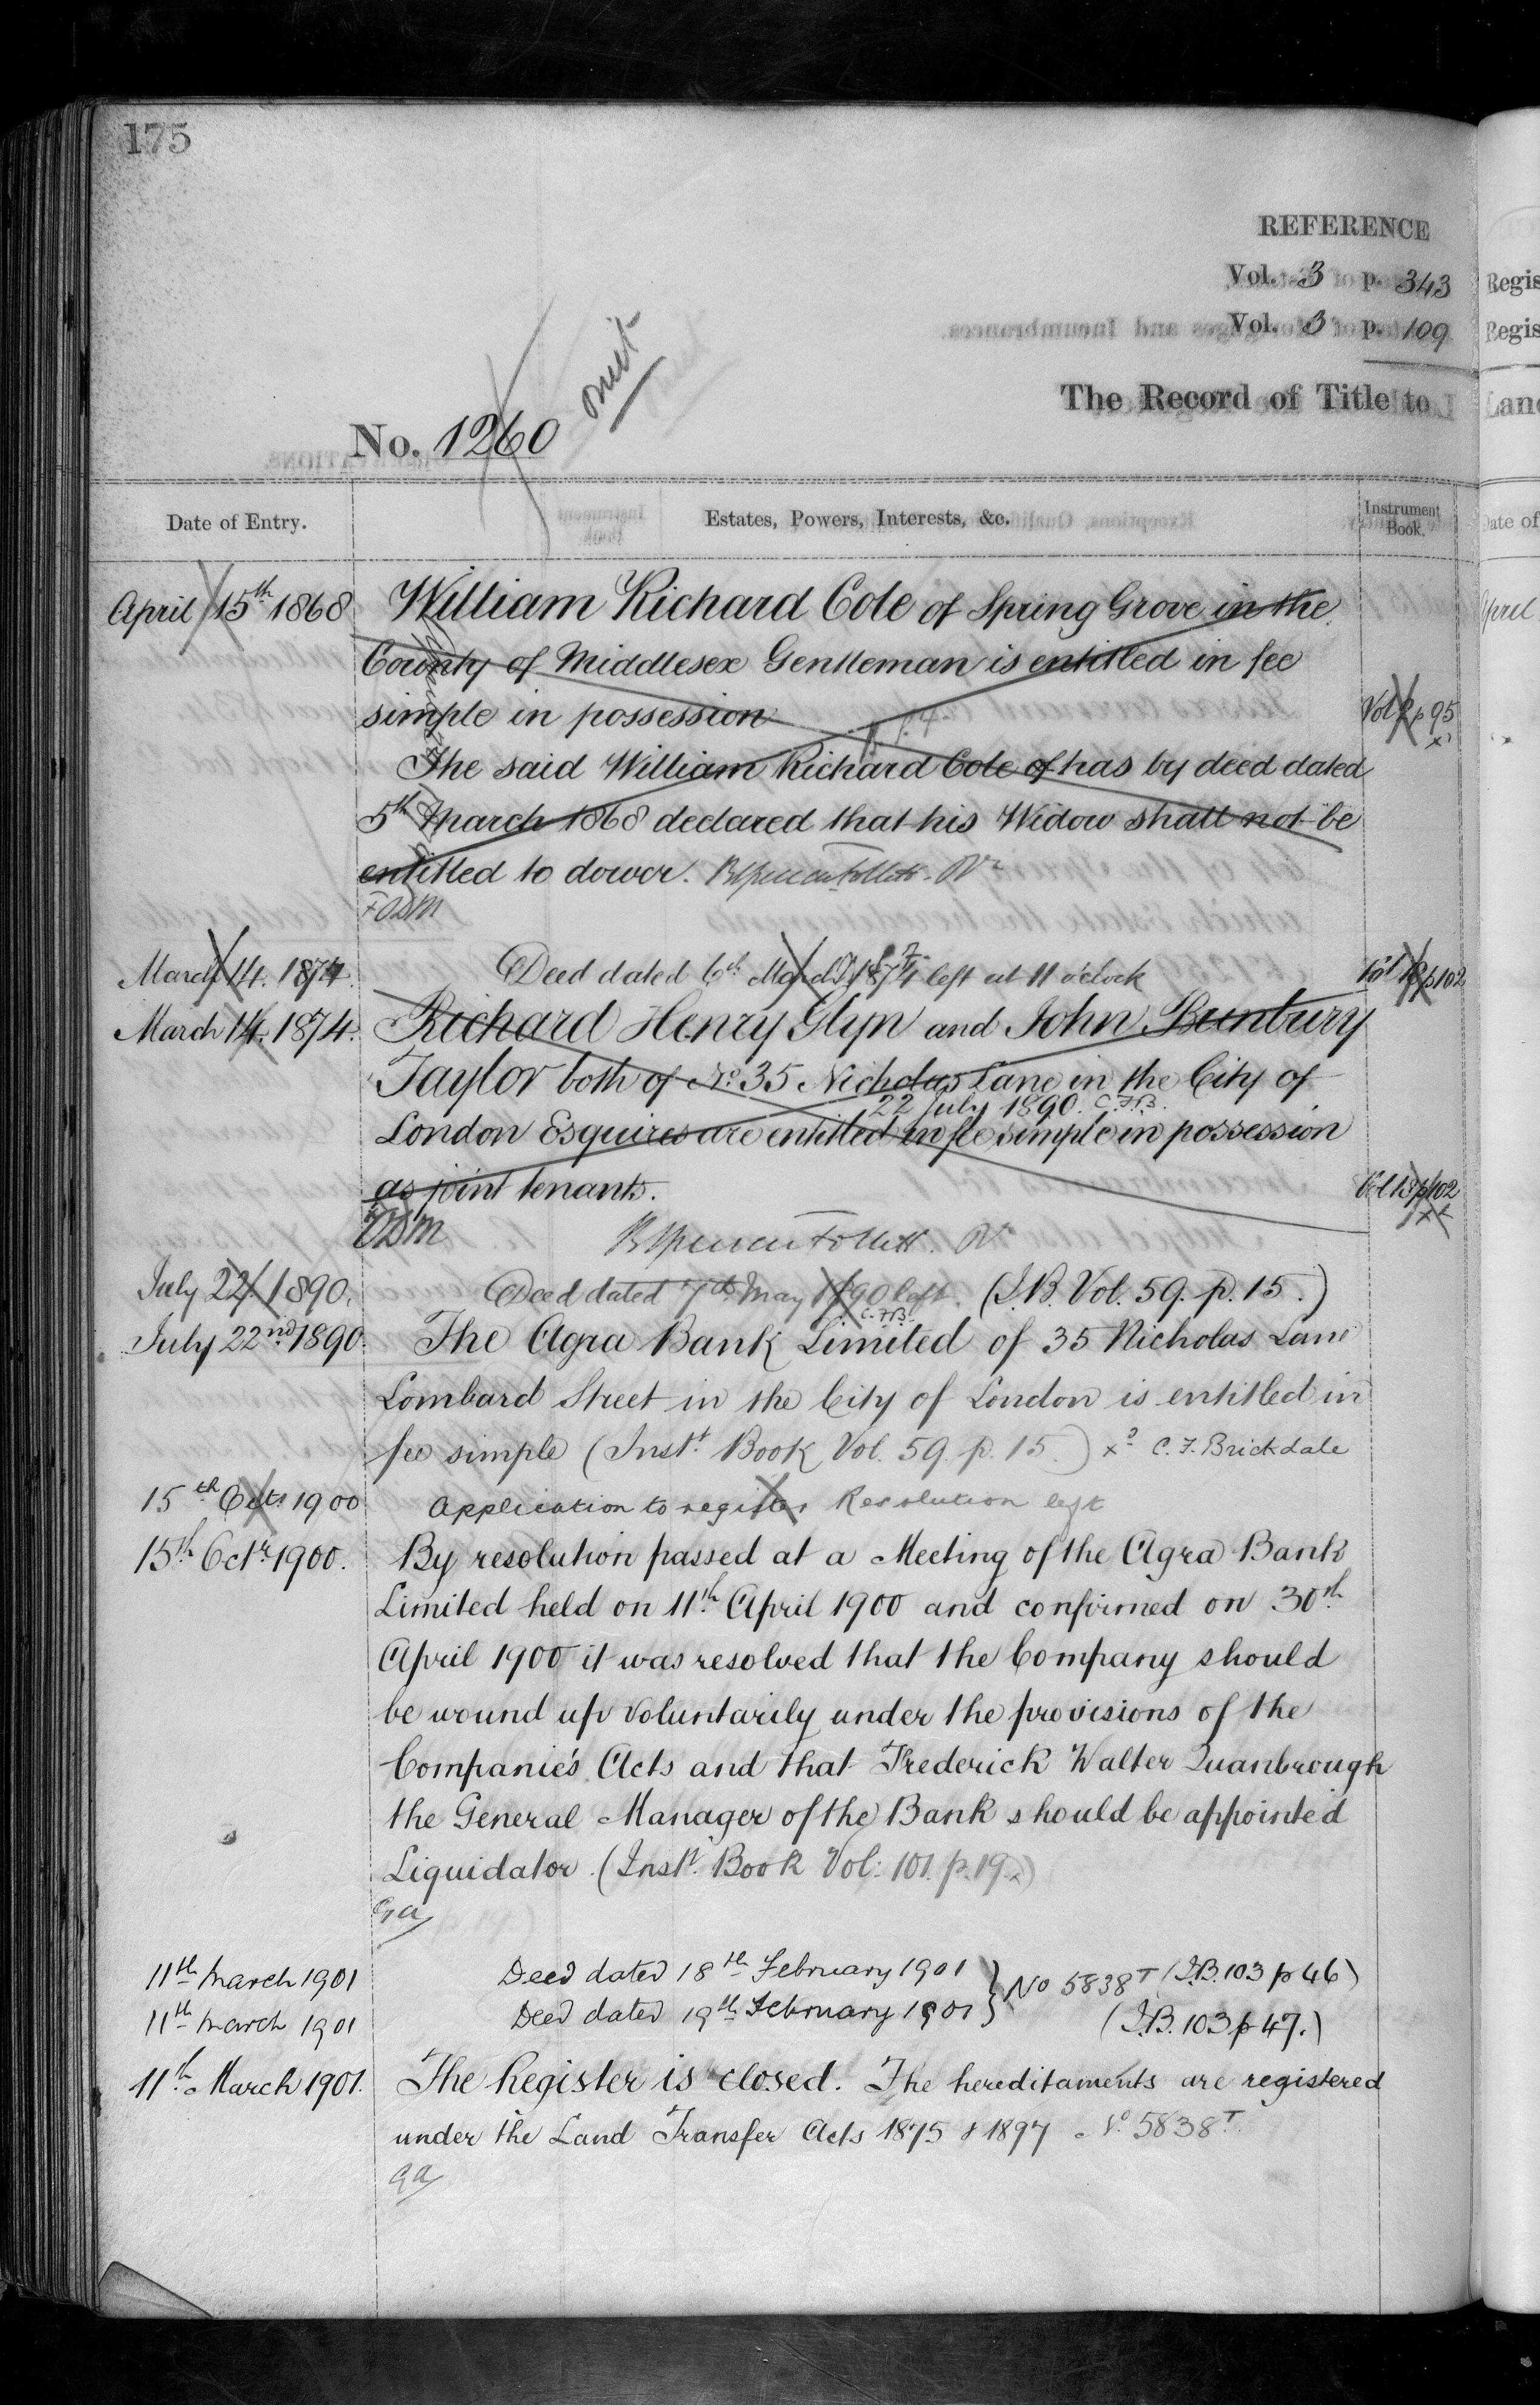 175
REFERENCE
Vol. 3 p. 343
Vol. 3 p. 109
omit
The Record of Title to
No. 1260
Date of Entry.
Estates, Powers, Interests, &c.
Instrument Book.
April 15th 1868 William Richard Cole of Spring Grove in the
County of Middlesex Gentleman is entitled in fee
simple in possession Vol 2 p 95
The said William Richard Cole of has by deed dated
5th March 1868 declared that his Widow shall not be
entitled to dower.
ODM
March 14. 1874. Deed dated 6th March 1874 left at 11 o'clock Vol 13 p 102
March 14. 1874. Richard Henry Glyn and John Bunbury
Taylor both of No. 35 Nicholas Lane in the City of
22 July 1890. C.F.B.
London Esquires are entitled in fee simple in possession
as joint tenants. Vol 13 p 102
ODM
July 22. 1890. Deed dated 7th May 1890 left. (I.B. Vol. 59. p. 15.)
C.F.B.
July 22nd 1890. The Agra Bank Limited of 35 Nicholas Lane
Lombard Street in the City of London is entitled in
fee simple (Inst. Book Vol. 59. p. 15.) C. F. Brickdale
15th Oct. 1900 Application to register Resolution left
15th Octr. 1900. By resolution passed at a Meeting of the Agra Bank
Limited held on 11th April 1900 and confirmed on 30th
April 1900 it was resolved that the Company should
be wound up voluntarily under the provisions of the
Companie's Acts and that Frederick Walter Quanbrough
the General Manager of the Bank should be appointed
Liquidator. (Inst. Book Vol: 101. p. 19.)
11th March 1901 Deed dated 18th February 1901 } No 5838T (I.B. 103 p 46)
11th March 1901 Deed dated 19th February 1901 } (I.B. 103 p 47.)
11th March 1901. The Register is closed. The hereditaments are registered
under the Land Transfer Acts 1875 & 1897 No. 5838T.
Regis
Regis
Land
Date of
April